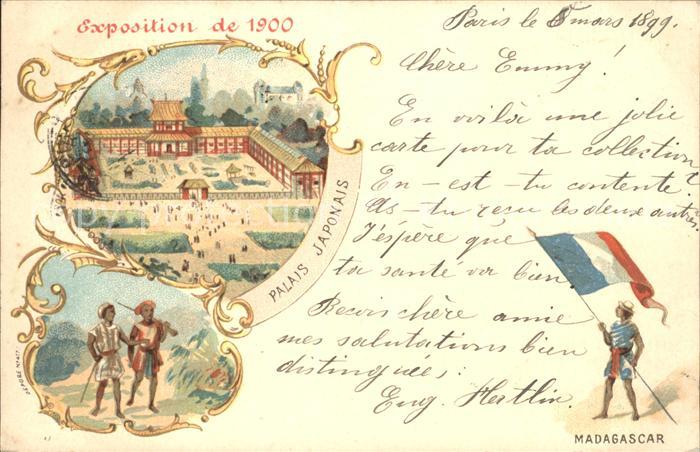 Exposition de 1900
PALAIS JAPONAIS
Paris le 8 mars 1899.
Chère Emmy!
En voilà une jolie
carte pour ta collection
En-est-tu contente?
As-tu reçu les deux autres,
J'éspère que
ta sante va bien.
Recois chère amie
mes salutations bien
distinguées.
Eug. Hertlin.
MADAGASCAR